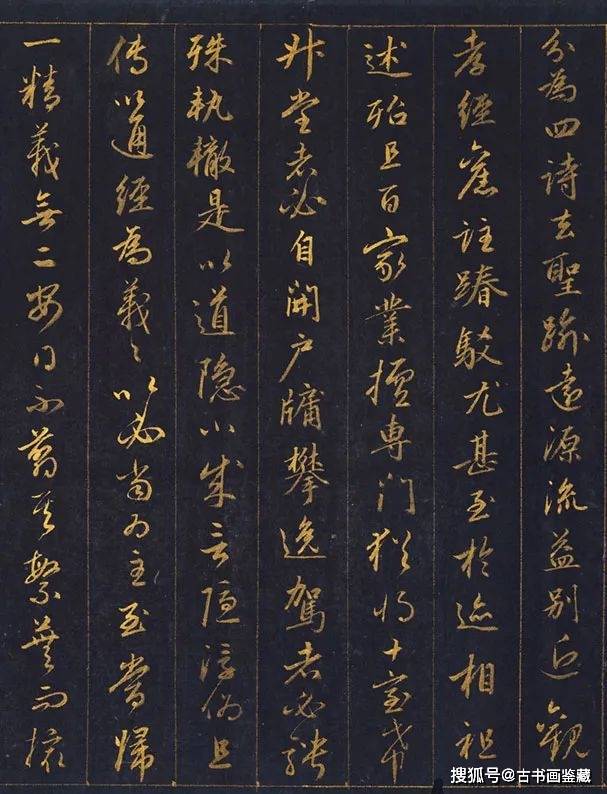 分為四詩去聖踰遠源流益別近觀
孝經舊註踳駁尤甚至於迹相祖
述殆且百家業擅專門猶將十室希
升堂者必自開戶牖攀逸駕者必騁
殊軌轍是以道隱小成言隱浮偽且
傳以通經為義〻以必當為主至當歸
一精義無二安得不翦其繁蕪而撮
搜狐号@古书画鉴藏